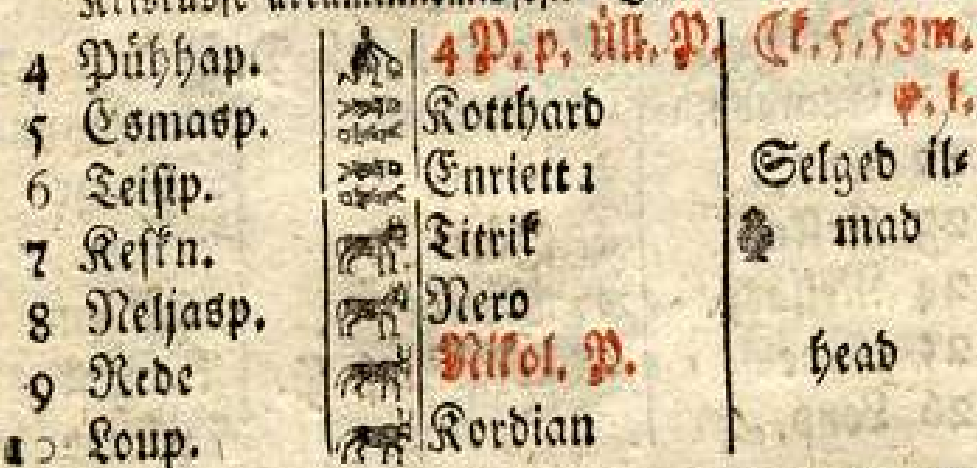 4 Pühhap. 4 P. p. Üll. P. Ck. 5, 53 m.
p. l.
5 Esmasp. Kotthard
6 Teisip. Enriett 1 Selged il-
7 Keskn. Titrik mad
8 Neljasp. Nero
9 Rede Nikol. P. head
10 Loup. Kordian